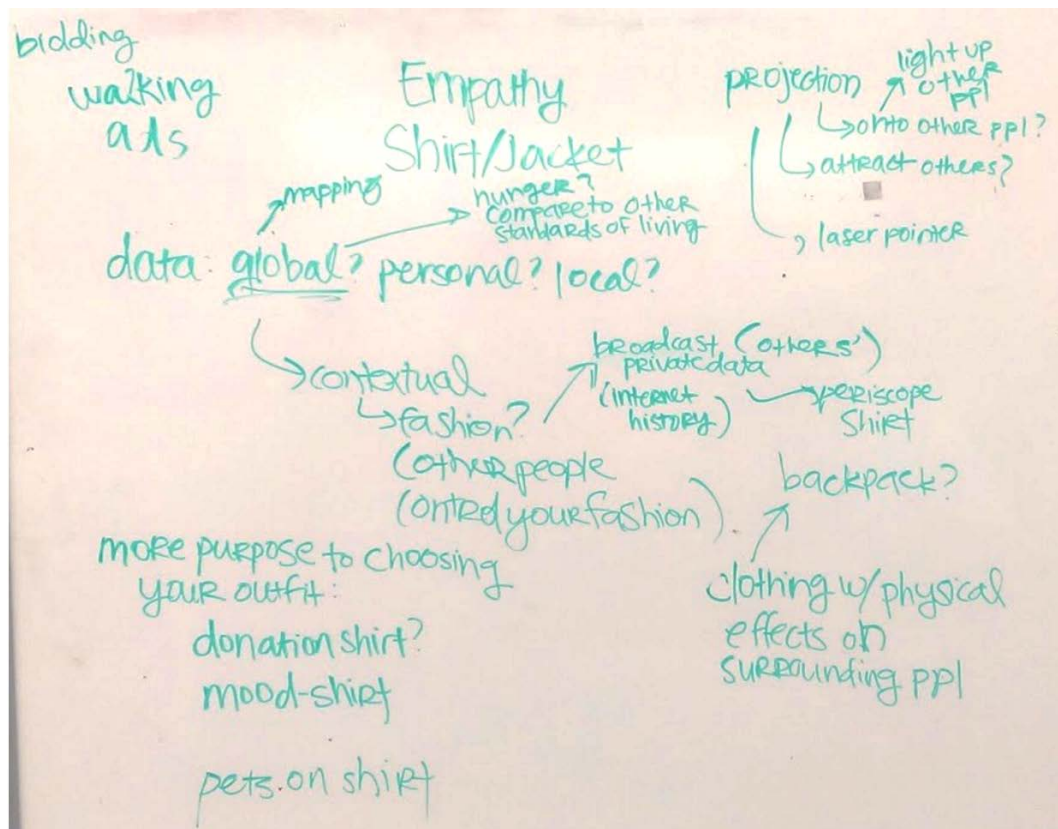 bidding
walking
ads
Empathy
Shirt/Jacket
projection
light up
other
ppl
onto other ppl?
attract others?
laser pointer
mapping
hunger?
compare to other
standards of living
data: global? personal? local?
contextual
fashion?
(other people
control your fashion)
broadcast (others')
private data
(internet
history)
periscope
shirt
backpack?
clothing w/ physical
effects on
surrounding ppl
more purpose to choosing
your outfit:
donation shirt?
mood-shirt
pets on shirt